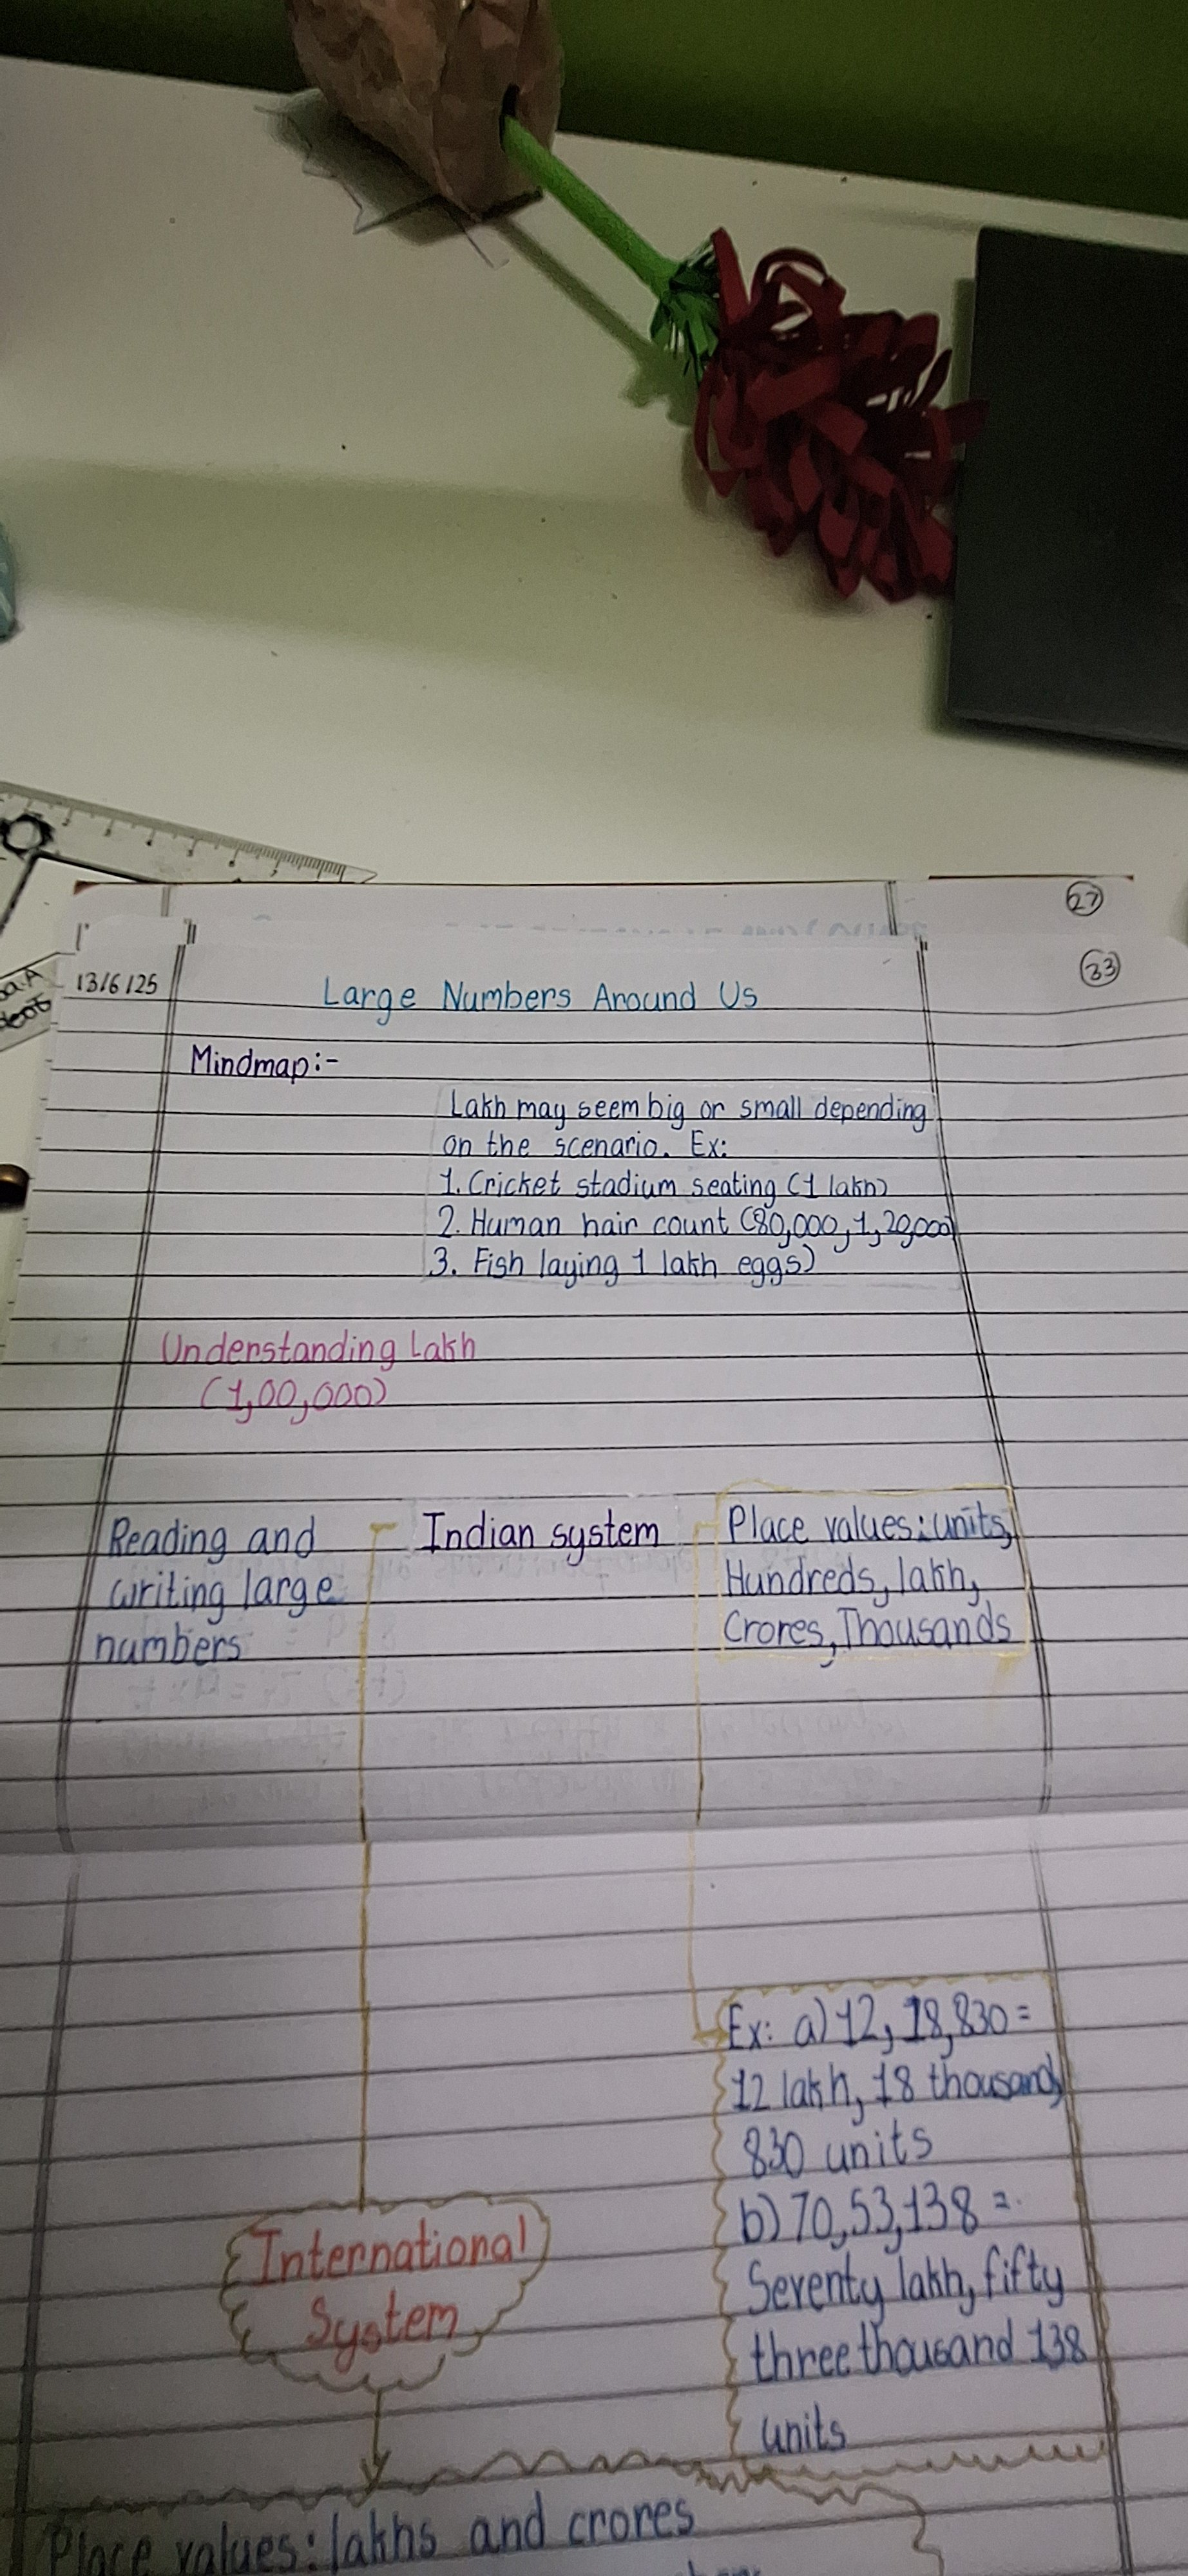 27
33
13/6/25
Large Numbers Around Us
Mindmap:-
Lakh may seem big or small depending
on the scenario. Ex:
1. Cricket stadium seating (1 lakh)
2. Human hair count (80,000, 1,20,000)
3. Fish laying 1 lakh eggs)
Understanding Lakh
(1,00,000)
Reading and
writing large
numbers
Indian system
Place values: units,
Hundreds, lakh,
Crores, Thousands
Ex: a) 12, 18,830 =
12 lakh, 18 thousand,
830 units
b) 70,53,138 =
Seventy lakh, fifty
three thousand 138
units
International
System
Place values: lakhs and crores